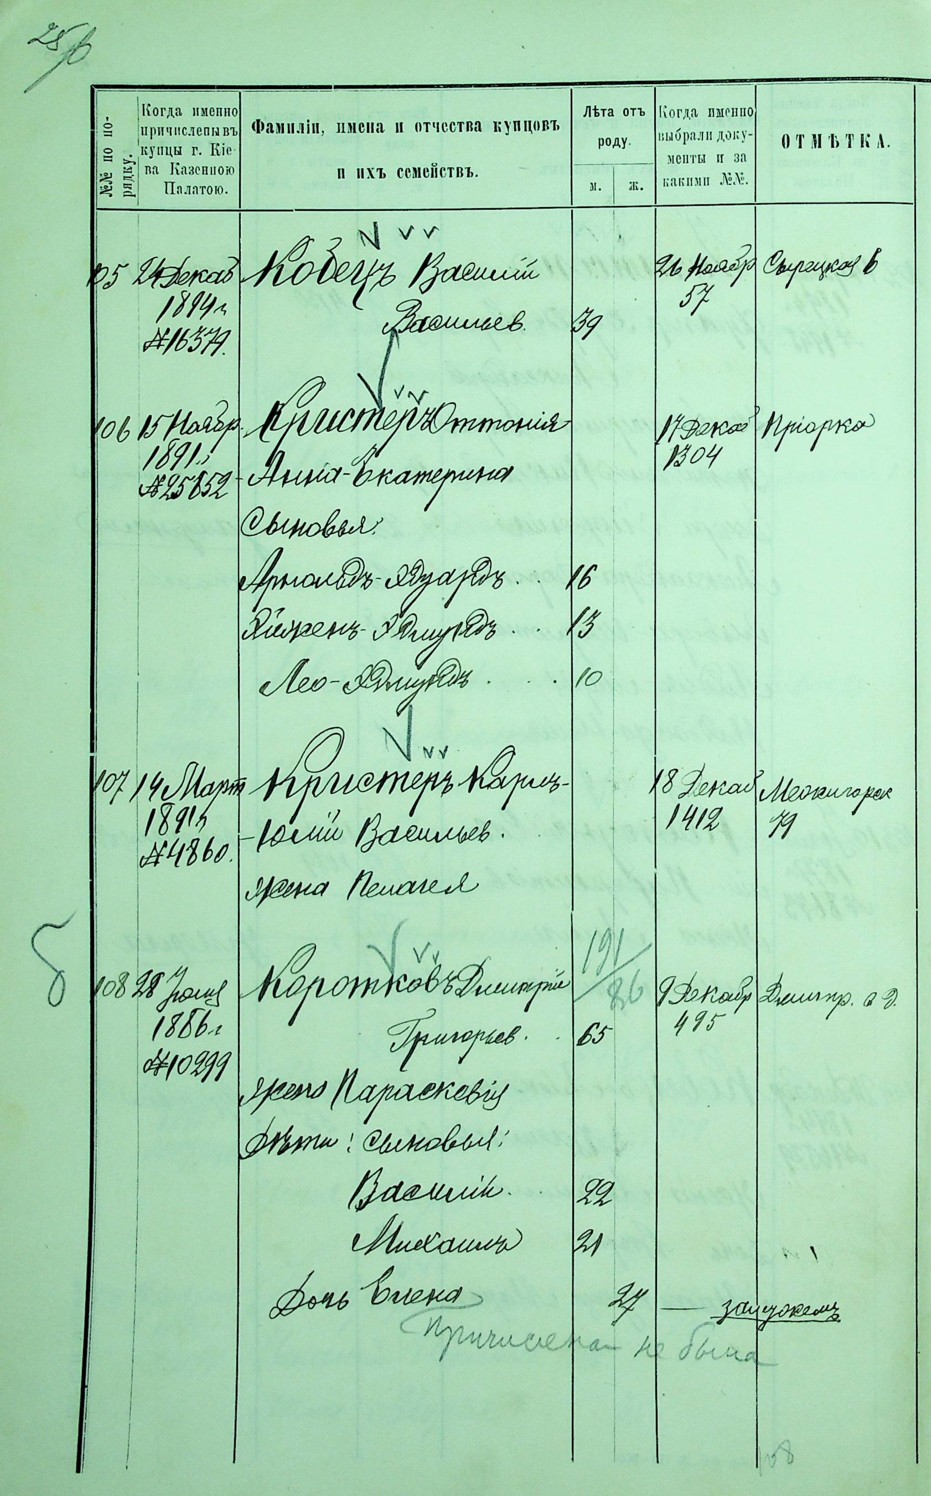 №№ по по-
рядку.
Когда именно
причислены въ
купцы г. Кіе-
ва Казенною
Палатою.
Фамиліи, имена и отчества купцовъ
и ихъ семействъ.
Лѣта отъ
роду.
м. ж.
Когда именно
выбрали доку-
менты и за
какими №№.
ОТМѢТКА.
105 24 Декаб Кобецъ Василій 26 Ноябр Сырецкая 6
1894 г 57
Васильев. 39
№16379.
106 15 Ноябр. Кристеръ Оттонія- 17 Декаб Пріорка
1891 г 1304
№25852 -Анна-Екатерина
Сыновья:
Арнольдъ-Эдуардъ . . 16
Эйженъ-Эдмундъ . 13
Лео-Эдмундъ . . 10
107 14 Март Кристеръ Карлъ- 18 Декаб Межигорск
1891 г 1412 79
№4860. -Юлій Васильев. .
жена Пелагея
191/86
108 28 Іюля Коротковъ Дмитрій 9 Декабр Дмитр. с д.
1886 г 495
Григорьев. . 65
№10299
жена Параскевія
Дѣти: сыновья:
Василій . 22
Михаилъ 21
Дочь Елена 27 — замужемъ
Причислена не была
108